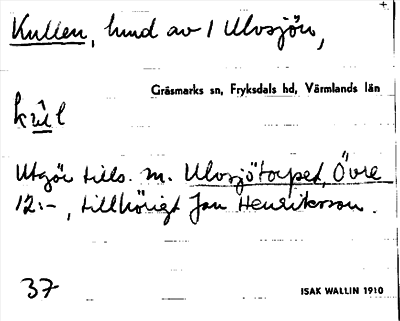 Kullen, hmd av 1 Ulvsjön,
Gräsmarks sn, Fryksdals hd, Värmlands län
kùl
Utgör tills. m. Ulvsjötorpet, Övre
12:-, tillhörigt Jan Henriksson.
37
ISAK WALLIN 1910